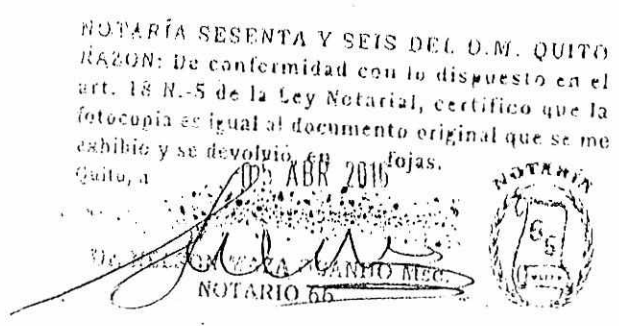 NOTARÍA SESENTA Y SEIS DEL D.M. QUITO
RAZON: De conformidad con lo dispuesto en el
art. 18 N.-5 de la Ley Notarial, certifico que la
fotocopia es igual al documento original que se me
exhibio y se devolvió, en fojas.
Quito, a 05 ABR 2016
NELSON MAZA MSC.
NOTARIO 66
NOTARÍA
66